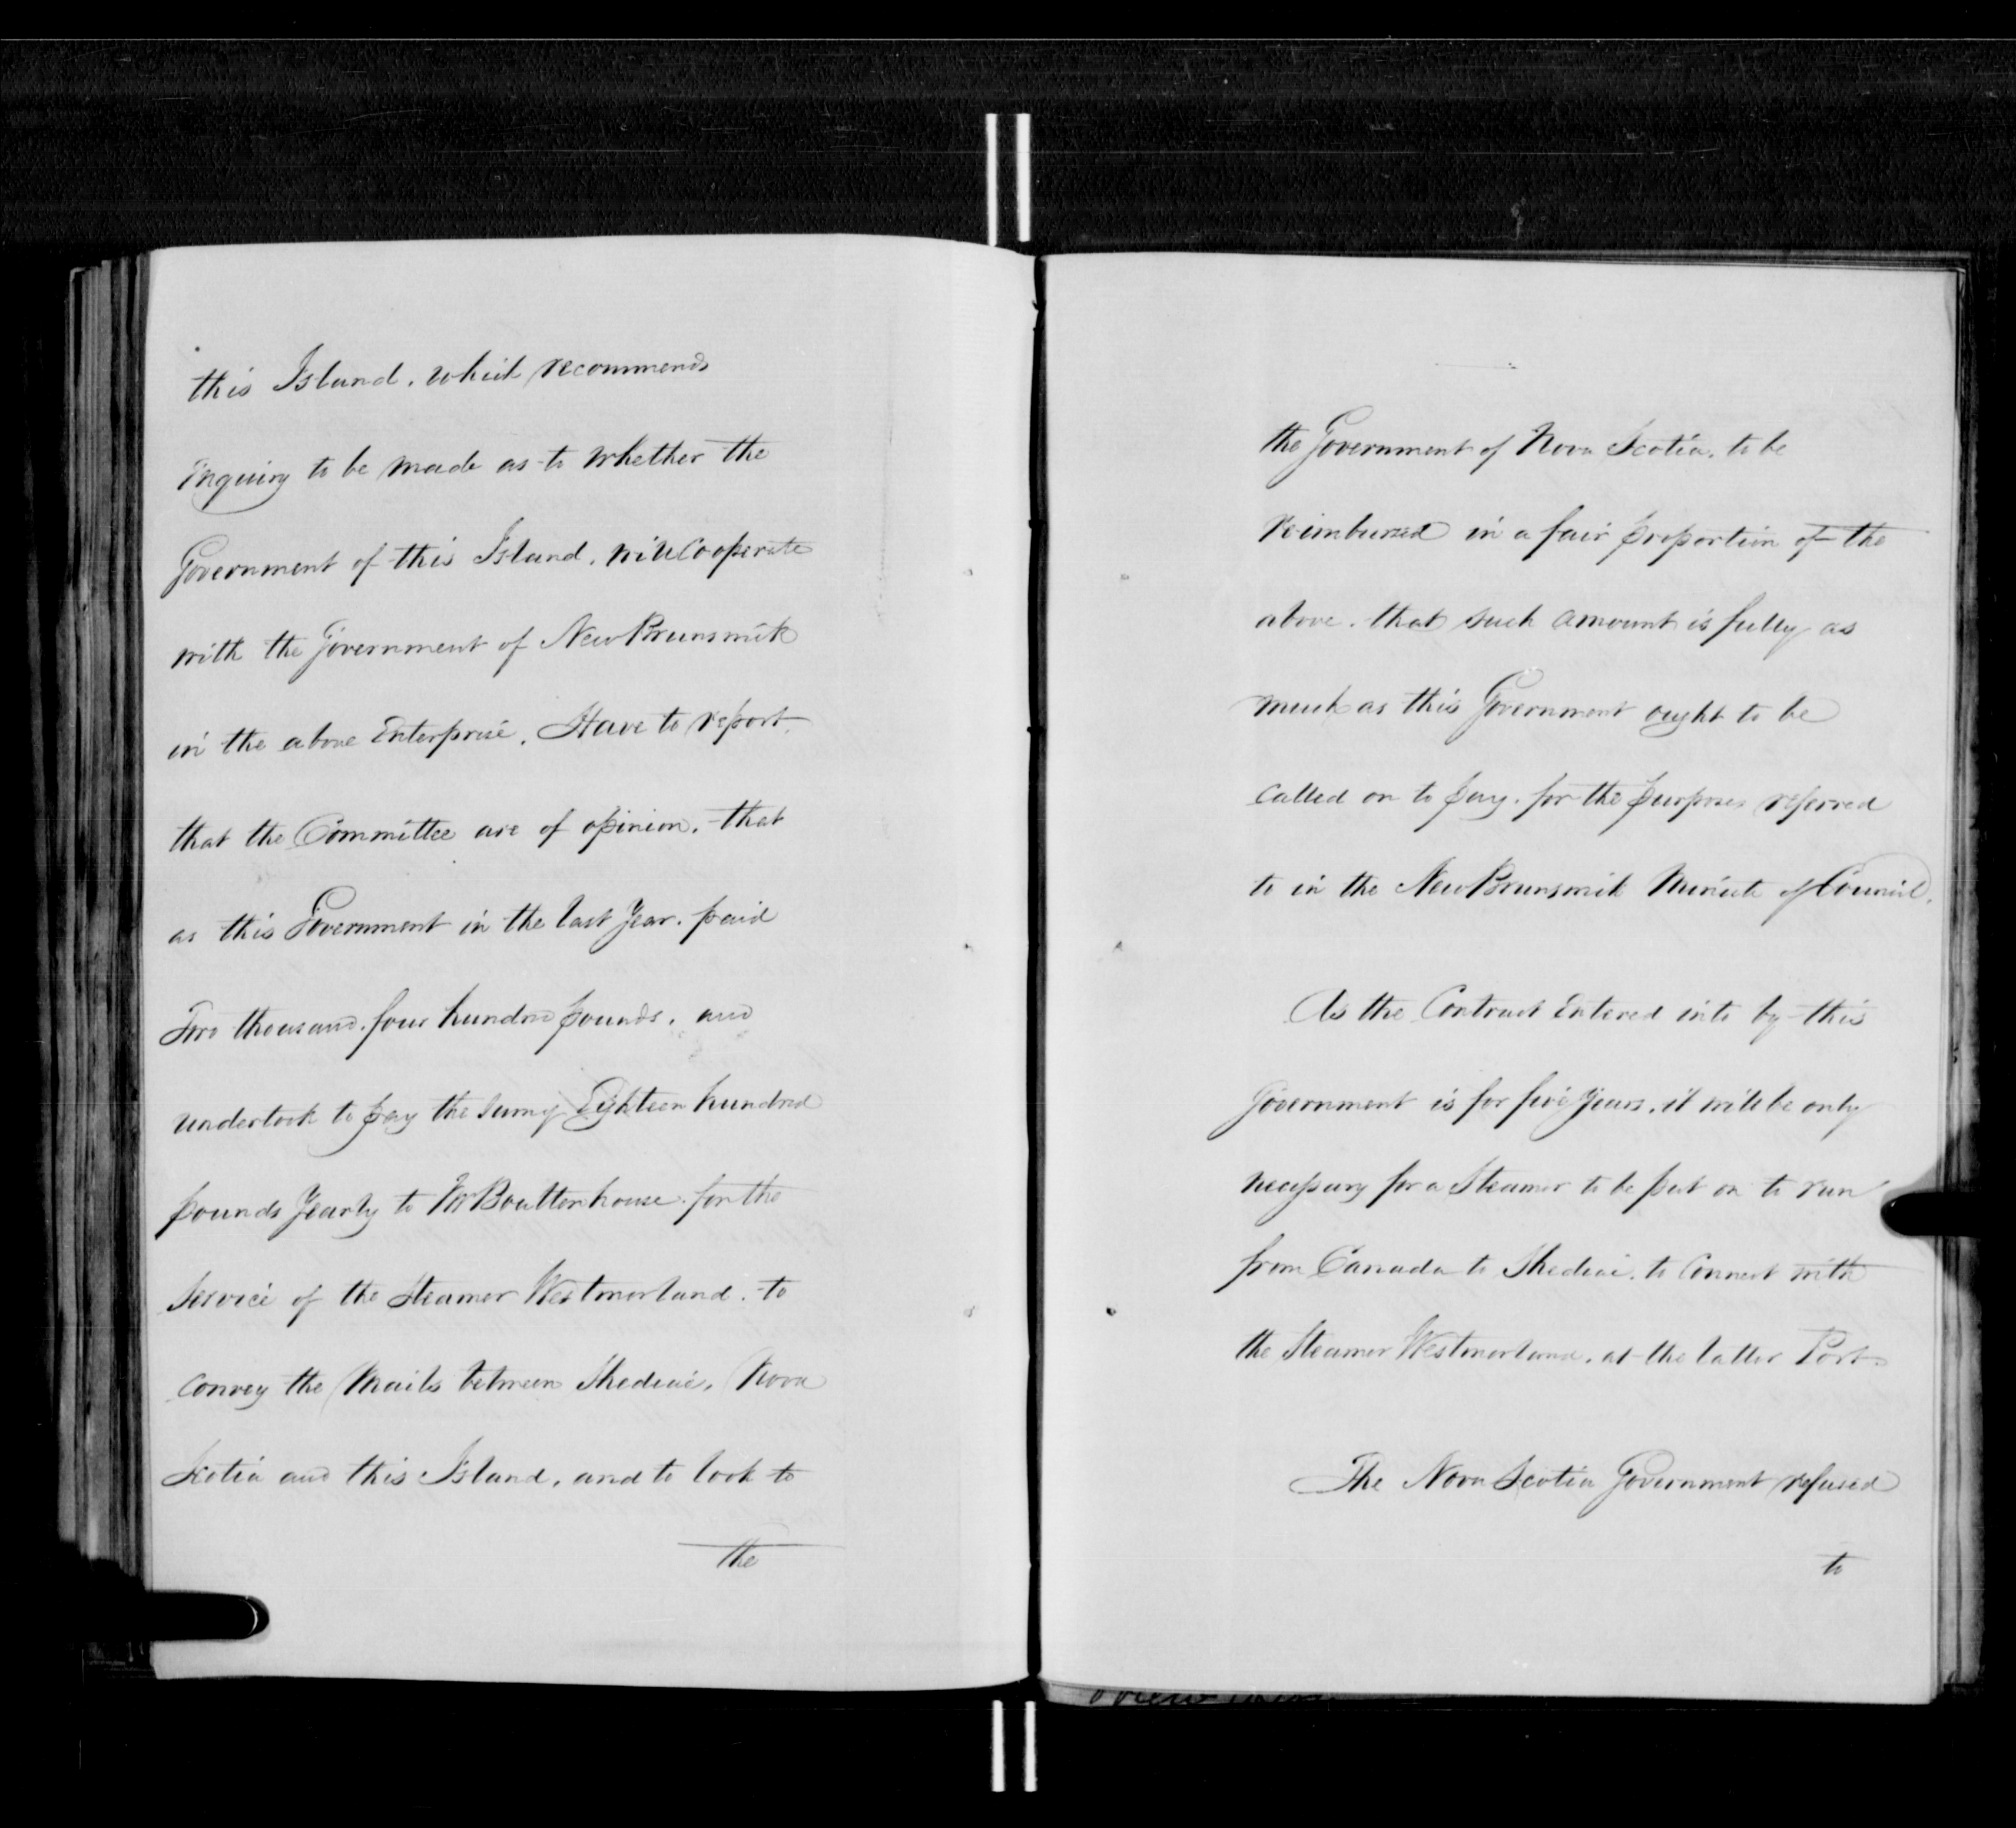 this Island, which recommends
inquiry to be made as to whether the
Government of this Island, will Cooperate
with the Government of New Brunswick
in the above Enterprise, Have to report,
that the Committee are of opinion, that
as this Government in the last Year, paid
Two thousand, four hundred pounds, and
undertook to pay the sum of Eighteen hundred
pounds Yearly to Mr Boultenhouse, for the
service of the Steamer Westmorland, to
convey the Mails between Shediac, Nova
Scotia and this Island, and to look to
the
the Government of Nova Scotia, to be
reimbursed in a fair proportion of the
above, that such amount is fully as
much as this Government ought to be
called on to pay, for the purposes referred
to in the New Brunswick Minute of Council.
As the Contract Entered into by this
Government is for five Years, it will be only
necessary for a Steamer to be put on to run
from Canada to Shediac, to Connect with
the Steamer Westmorland, at the latter Port.
The Nova Scotia Government refused
to